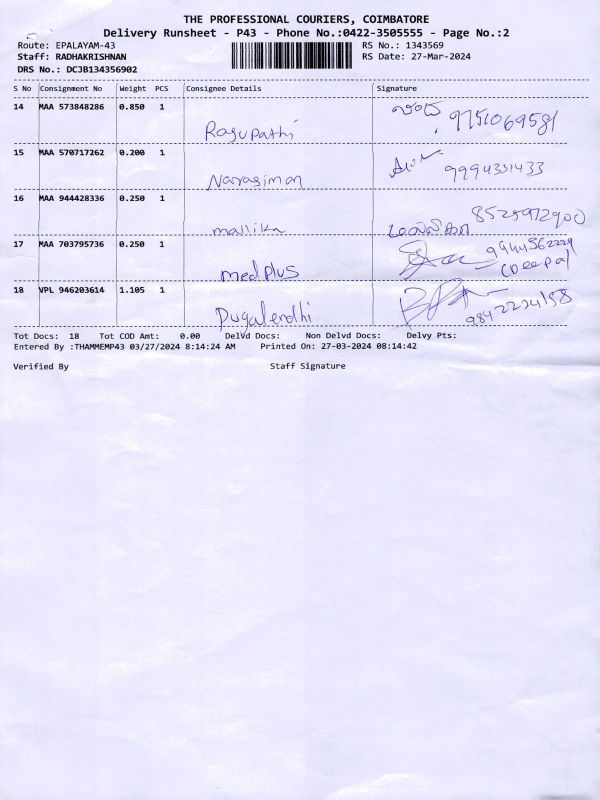 THE PROFESSIONAL COURIERS, COIMBATORE
Delivery Runsheet - P43 - Phone No.:0422-3505555 - Page No.:2
Route: EPALAYAM-43 RS No.: 1343569
Staff: RADHAKRISHNAN RS Date: 27-Mar-2024
DRS No.: DCJB134356902
S No Consignment No Weight PCS Consignee Details Signature
14 MAA 573848286 0.850 1 Ragupathi 9751069581
15 MAA 570717262 0.200 1 Narrasiman 9994351433
16 MAA 944428336 0.250 1 mallika மல்லிகா 8525912900
17 MAA 703795736 0.250 1 medplus 9944562229
(Deepa)
18 VPL 946203614 1.105 1 Pugalendhi 9842234158
Tot Docs: 18 Tot COD Amt: 0.00 Delvd Docs: Non Delvd Docs: Delvy Pts:
Entered By :THAMMEMP43 03/27/2024 8:14:24 AM Printed On: 27-03-2024 08:14:42
Verified By Staff Signature